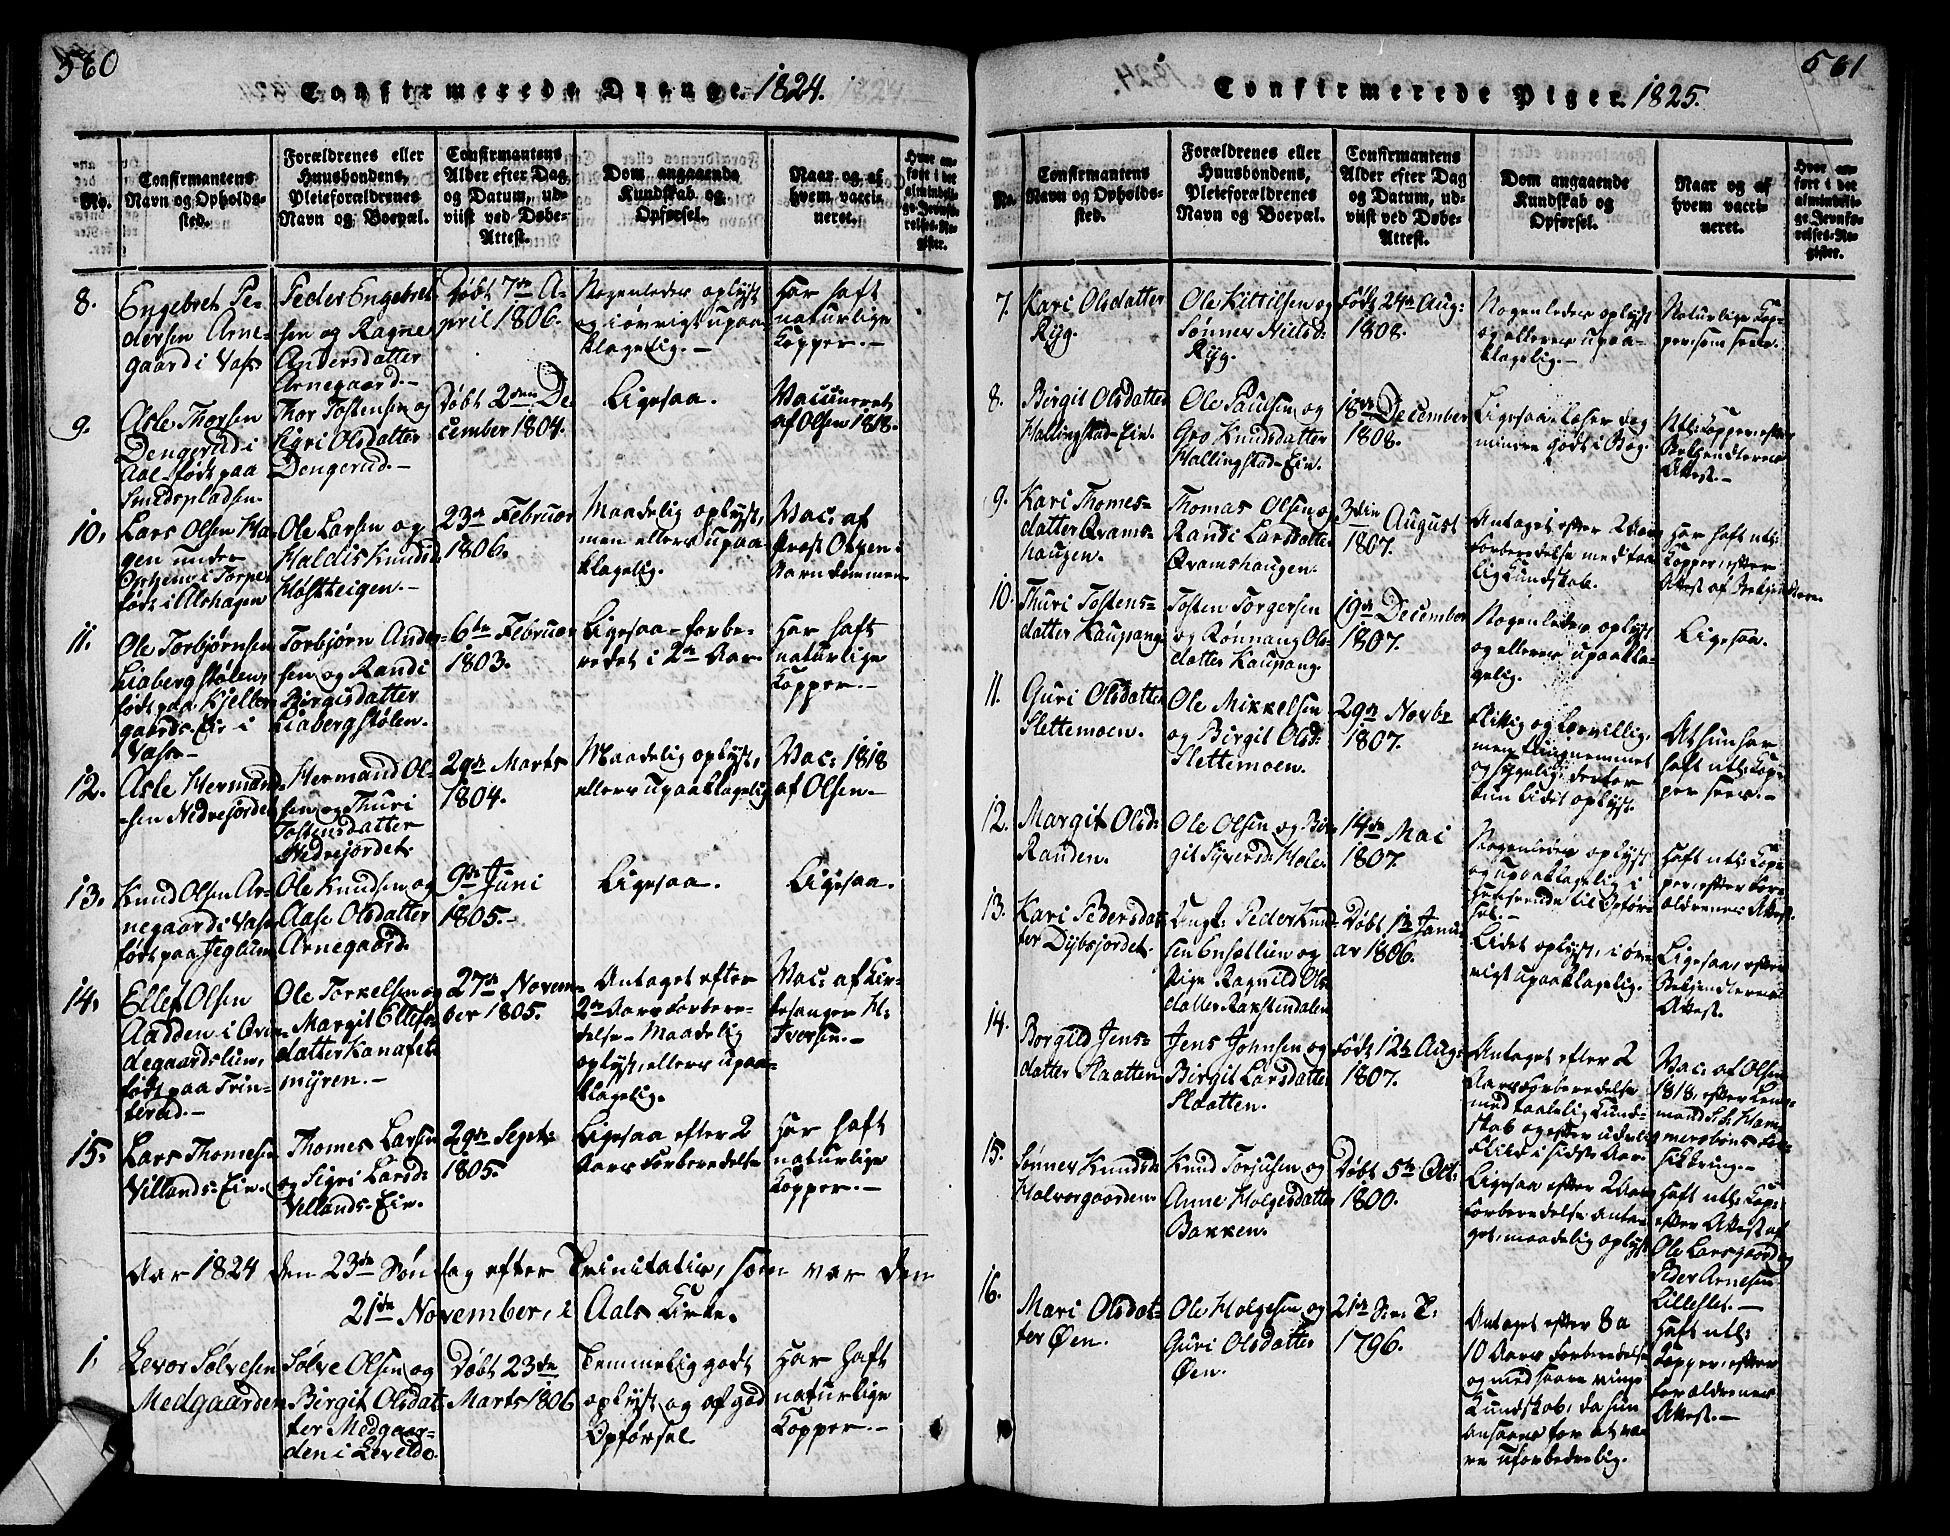 560
Confirmerede Drenge 1824.
No.
Confirmantens
Navn og Opholds-
sted.
Forældrenes eller
Huusbondens,
Pleieforældrenes
Navn og Boepæl.
Confirmantens
Alder efter Dag
og Datum, ud-
viist ved Døbe-
Attest.
Dom angaaende
Kundskab og
Opførsel.
Naar og af
hvem vacci-
neret.
Hvor an-
ført i det
almindeli-
ge Jevnfø-
relses-Re-
gister.
8.
Engebret Pe-
dersen Arne-
gaard i Vats
Peder Engebret-
sen og Ragne
Andersdatter
Arnegaard.-
Døbt 7de A-
pril 1806.
Nogenledes oplyst
og i øvrigt upaa-
klagelig.-
Har haft
naturlige
Kopper.-
9.
Asle Thorsen
Dengerud i
Aal født paa
Smedspladsen.
Thor Tostensen og
Sigri Olsdatter
Dengerud.-
Døbt 2den De-
cember 1804.
Ligesaa.
Vaccineret
af Olsen 1818.
10.
Lars Olsen Ha-
gen under
Opheim i Torpe
født i Alshagen
Ole Larsen og
Haldis Knudsd
Høstteigen.-
23de Februar
1806.
Maadelig oplyst,
men ellers upaa-
klagelig.
Vac: af
Provst
11.
Ole Torbjørnsen
Liabergstølen,
født paa Kjeller-
gaards-Eie i
Vats-
Torbjørn Ander-
sen og Randi
Birgisdatter
Liabergstølen.
6te Februar
1803.
Ligesaa-forbe-
redet i 2de Aar.
Har haft
naturlige
Kopper.-
12.
Asle Hermand-
sen Nedrejordet
Hermand Ol-
sen og Thuri
Tostensdatter
Nedrejordet.
29de Marts
1804.
Maadelig oplyst,
ellers upaaklagelig
Vac: 1818
af Olsen-
13.
Knud Olsen Ar-
negaard i Vats
født paa Jeglum
Ole Knudsen og
Aase Olsdatter
Arnegaard.
9de Juni
1805.-
Ligesaa.
Ligesaa.
14.
Ellef Olsen
Aadden i Qvin-
degaardslien,
født paa Trin-
terud.-
Ole Torkelsen og
Margit Ellefs-
datter Kanaset-
myren.-
27de Novem-
ber 1805.
Antaget efter
2de Aars Forbere-
delse- Maadelig
oplyst, ellers upaa-
klagelig.
Vac: af Kir-
kesanger H.
Iversen.-
15.
Lars Thomesen
Villands-Eie.
Thomes Larsen
og Sigri Larsd:
Villands-Eie.
29de Septe:
1805.
Ligesaa efter 2
Aars Forberedelse
Har haft
naturlige
Kopper.-
Aar 1824 den 23de Søndag efter Trinitatis, som var den
21de November, i Aals Kirke.
1.
Levor Sølvesen
Medgaarden
Sølve Olsen og
Birgit Olsdat-
ter Medgaar-
den i Leveldo.
Døbt 23de
Marts 1806
Temmelig godt
oplyst og af god
Opførsel
Har haft
naturlige
Kopper.-
561
Confirmerede Piger 1825.
No.
Confirmantens
Navn og Opholds-
sted.
Forældrenes eller
Huusbondens,
Pleieforældrenes
Navn og Boepæl.
Confirmantens
Alder efter Dag
og Datum, ud-
viist ved Døbe-
Attest.
Dom angaaende
Kundskab og
Opførsel.
Naar og af
hvem vacci-
neret.
Hvor an-
ført i det
almindeli-
ge Jevnfø-
relses-Re-
gister.
7.
Kari Olsdatter
Ryg.
Ole Kittilsen og
Sønnev Nielsd:
Ryg.
Født 24de Aug:
1808.
Nogenledes oplyst
og ellers upaa-
klagelig.-
Naturlige Kop-
per
8.
Birgit Olsdatter
Hallingstad-Eie.
Ole Paulsen og
Gro Knudsdatter
Hallingstad-Eie.
18de December
1808.
Ligesaa, læser dog
mindre godt i Bog.
Ntl: Kopper, efter
Attest.-
9.
Kari Thomes-
datter Qvams-
haugen.
Thomas Olsen og
Randi Larsdatter
Qvamshaugen.
3die August
1807.
Antaget efter 2 Aars
Forberedelse med taa-
lig Kundskab.
Har haft ntl:
Kopper, efter
Attest af
10.
Thuri Tostens-
datter Kaupang
Tosten Torgersen
og Rønnaug Ols-
datter Kaupang.
19de December
1807.
Nogenledes oplyst
og ellers upaakla-
gelig.
Ligesaa.
11.
Guri Olsdatter
Slettemoen.
Ole Mikkelsen
og Birgit Olsd:
Slettemoen.
29de Novbr
1807.
Flittig og lærvillig,
men tungnemmet
og sygelig; derfor
kun lidet oplyst.
At hun har
haft ntl: Kop-
per sees.-
12.
Margit Olsd:
Randen.
Ole Olsen og Bir-
git Syversd: Hole.
14de Mai
1807.
Nogenledes oplyst
og upaaklagelig i
Henseende til Opfør-
sel.-
Haft ntl: Kop-
per, efter For-
ældrenes Attest.
13.
Kari Pedersdat-
ter Dybsjordet.
Ungk: Peder Knud-
sen Ensetlien og
Pige Ragnild Ols-
datter Rakstendalen
Døbt 1ste Janu-
ar 1806.
Lidet oplyst, i øv-
rigt upaaklagelig.
Ligesaa, efter
Attest.
14.
Borgild Jens-
datter Slaatten
Jens Johnsen og
Birgit Larsdatter
Slaatten.
Født 12te Aug:
1807.
Antaget efter 2
Aars Forberedelse
med taalelig Kund-
skab og efter
Flid i sidste Aar.
Vac: af Olsen
1818, efter
15.
Sønnev Knudsd:
Halvorgaarden.
Knud Torjusen og
Anne Holgesdatter
Bakken.
Døbt 5te Oct:
1800.
Ligesaa efter 2 Aars
Forberedelse anta-
get, maadelig oplyst
Haft ntl: Kop:
efter Attest af
Ole Larsgaard og
Peder Arnesen
Lilleslet.-
16.
Mari Olsdat-
ter Øen.
Ole Holgesen og
Guri Olsdatter
Øen.
21de
1796.
Antaget efter 8 a
10 Aars Forberedelse
og med saare ringe
Kundskab, da hun
ansaaes for at væ-
re uforbederlig.
Haft ntl:
Kopper, efter
Forældrenes
Attest.-